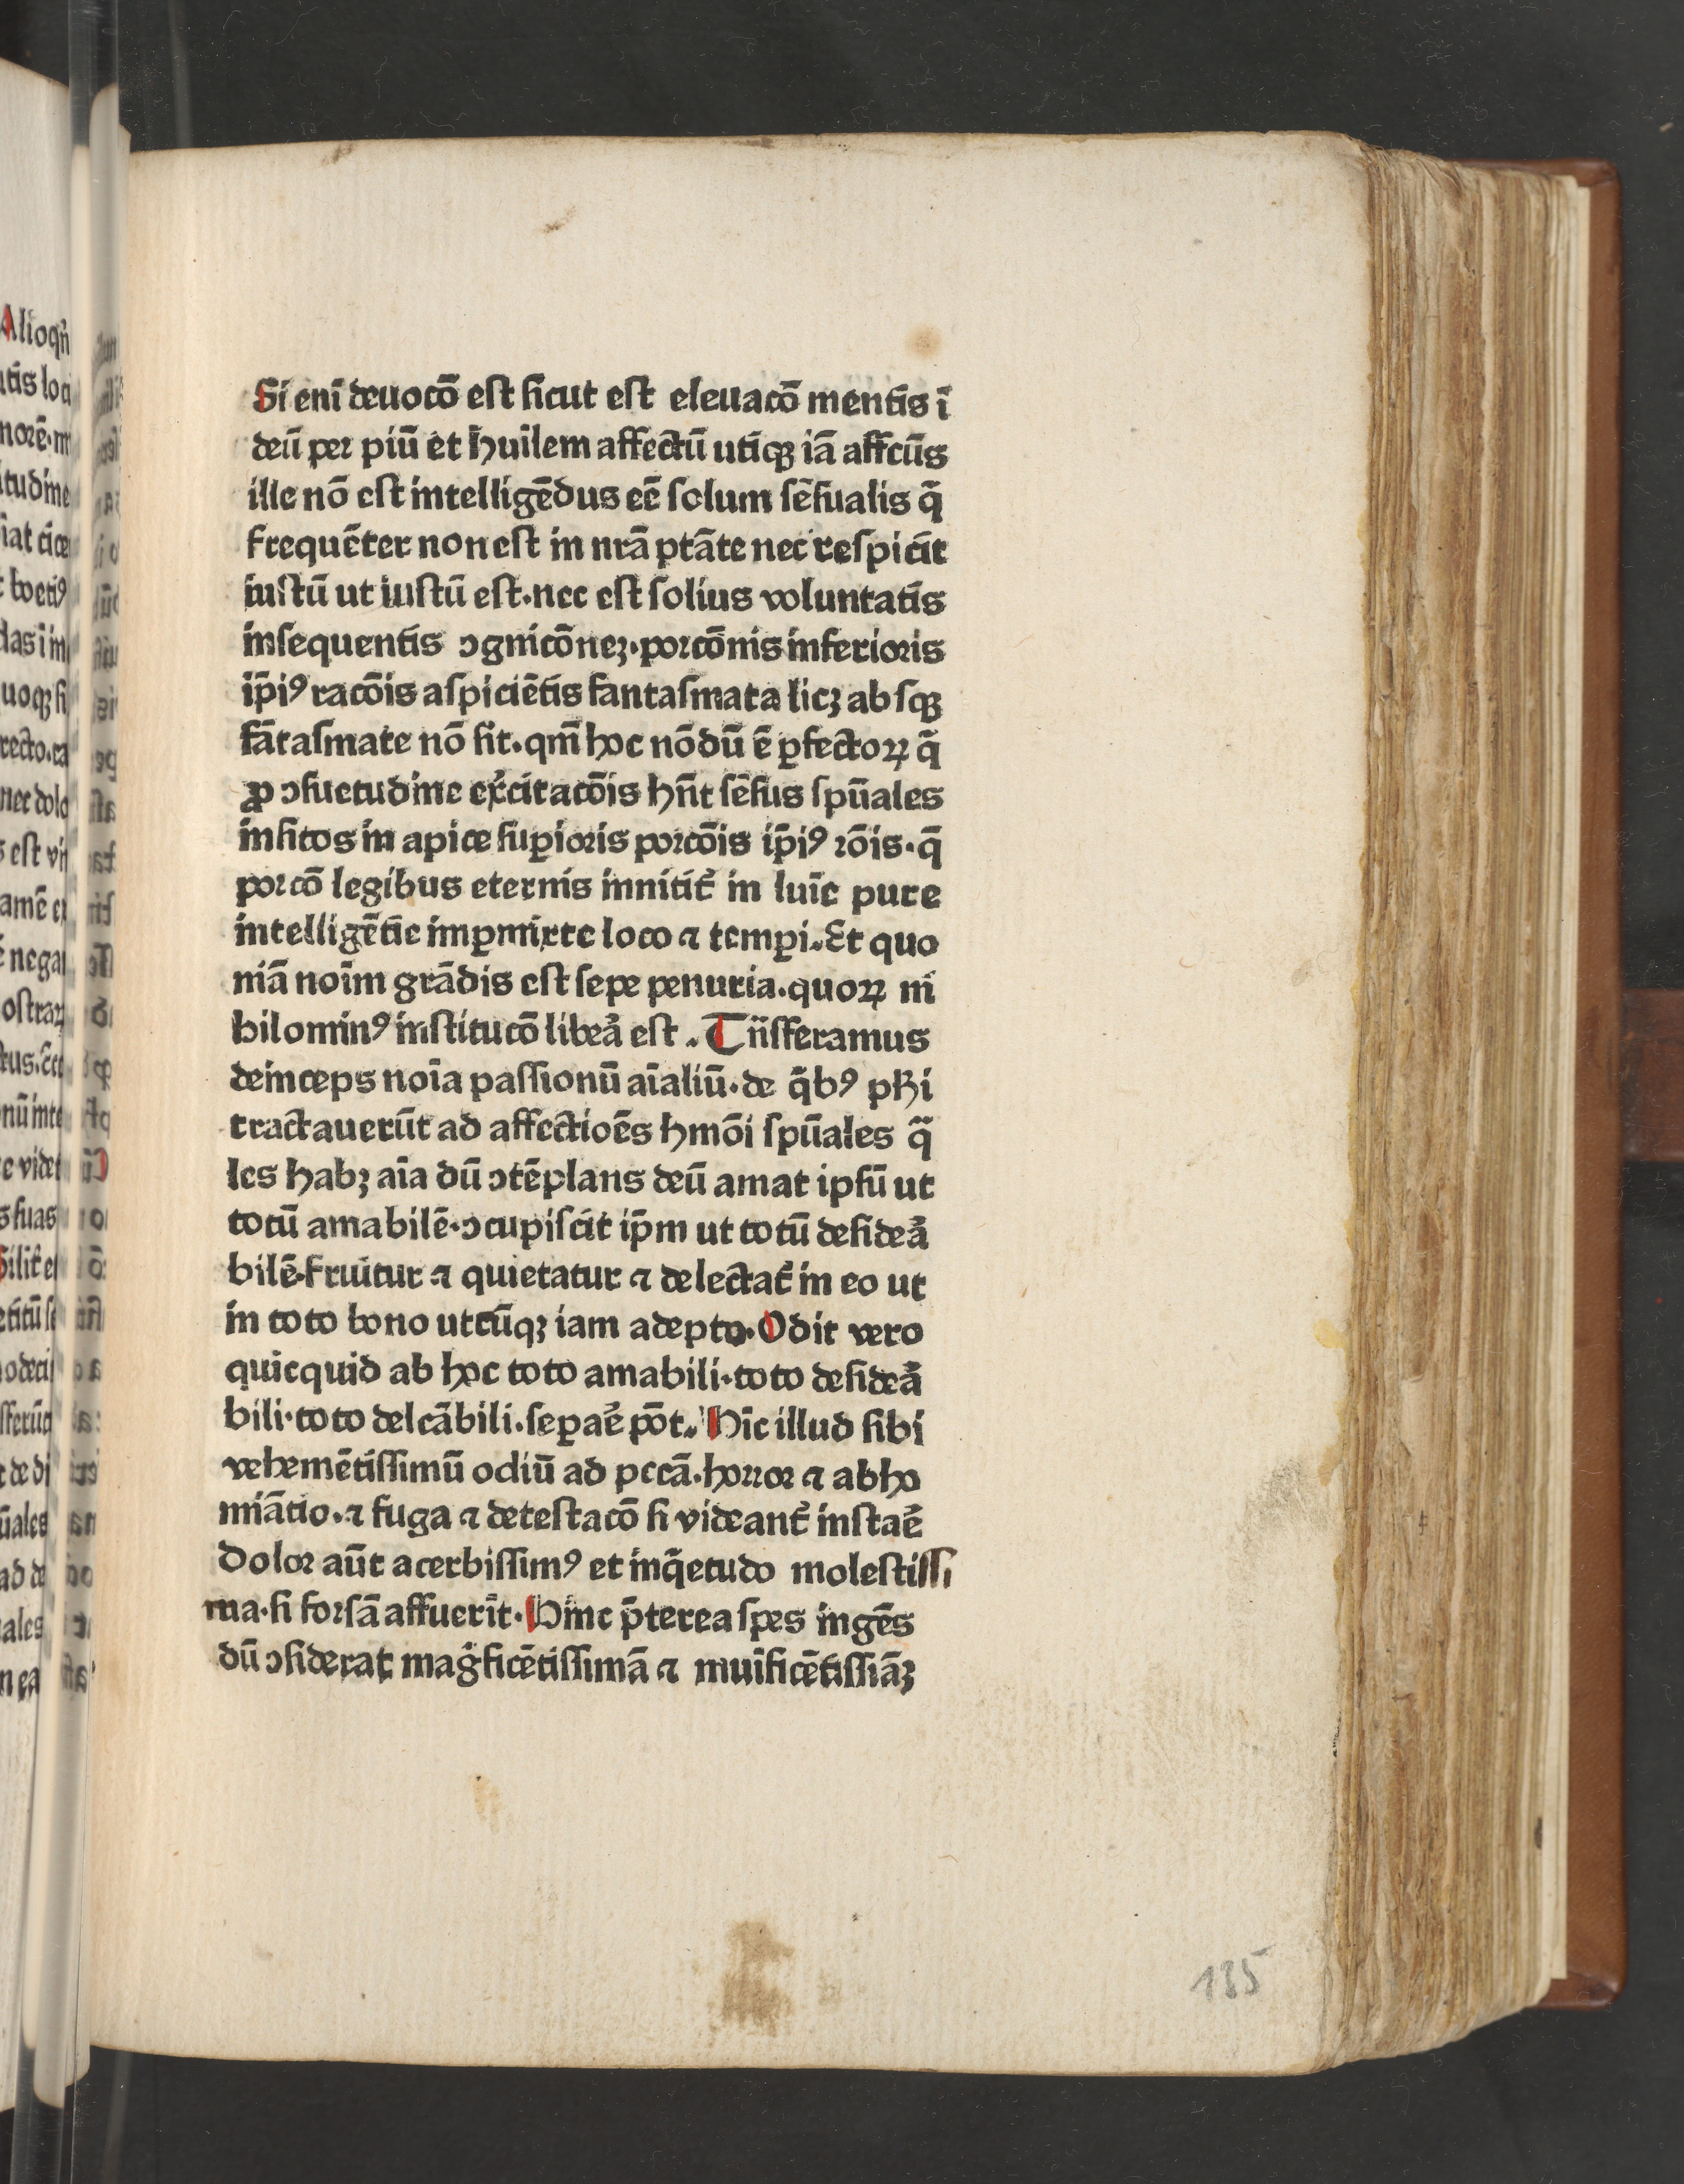 Si eni̅ deuoco̅ eſt ſicut eſt eleuaco̅ menti̅s i̅
deu̅ per piu̅ et hui̅lem affectu̅ utiqꝫ ia̅ affcu̅s
ille no̅ eſt intellige̅dus ee̅ ſolum ſe̅ſualis q̅
freque̅ter non eſt in nr̅a pta̅te nec reſpicit
iuſtu̅ ut iuſtu̅ eſt·nec eſt ſolius voluntati̅s
inſequenti̅s ɔgnico̅neꝫ·porco̅nis inferioris
ip̅iꝰ raco̅is aſpicie̅ti̅s fantaſmata licꝫ abſqꝫ
fa̅taſmate no̅ ſit·qm̅ hoc no̅du̅ e̅ ꝑfectoꝝ q̅
ꝓ ɔſuetudine ex̾citaco̅is hn̅t ſe̅ſus ſpu̅ales
inſitos in apice ſuꝑioris porco̅is ip̅iꝰ ro̅is·q̅
porco̅ legibus eternis innitit᷑ in lui̅e pure
intellige̅tie imꝑmixte loco ⁊ temꝑi·Et quo
nia̅ noi̅m gra̅dis eſt ſepe penuria·quoꝝ ni
hilominꝰ inſtituco̅ libea᷑ eſt·Tn̅ſferamus
deinceps noi̅a paſſionu̅ ai̅aliu̅·de q̅bꝰ phi̅
tractaueru̅t ad affectioe̅s hmo̅i ſpu̅ales q̅
les habꝫ ai̅a du̅ ɔte̅plans deu̅ amat ipſu̅ ut
totu̅ amabile̅·ɔcupiſcit ip̅m ut totu̅ deſidea᷑
bile̅·fruitur ⁊ quietatur ⁊ delectat᷑ in eo ut
in toto bono utcu̅qꝫ iam adepto·Odit vero
quicquid ab hoc toto amabili·toto deſidea᷑
bili·toto delca̅bili·ſeꝑae᷑ po̅t·Hi̅c illud ſibi
veheme̅tiſſimu̅ odiu̅ ad pcca̅·horror ⁊ abho
mia̅tio·⁊ fuga ⁊ deteſtaco̅ ſi videant᷑ inſtae᷑
Dolor au̅t acerbiſſimꝰ et inq̅etudo moleſtiſſi
ma·ſi forſa̅ affueri̅t·Hinc p̅terea ſpes inge̅s
du̅ ɔſiderat mag̾fice̅tiſſima̅ ⁊ mui̅fice̅tiſſia̅ꝫ
135